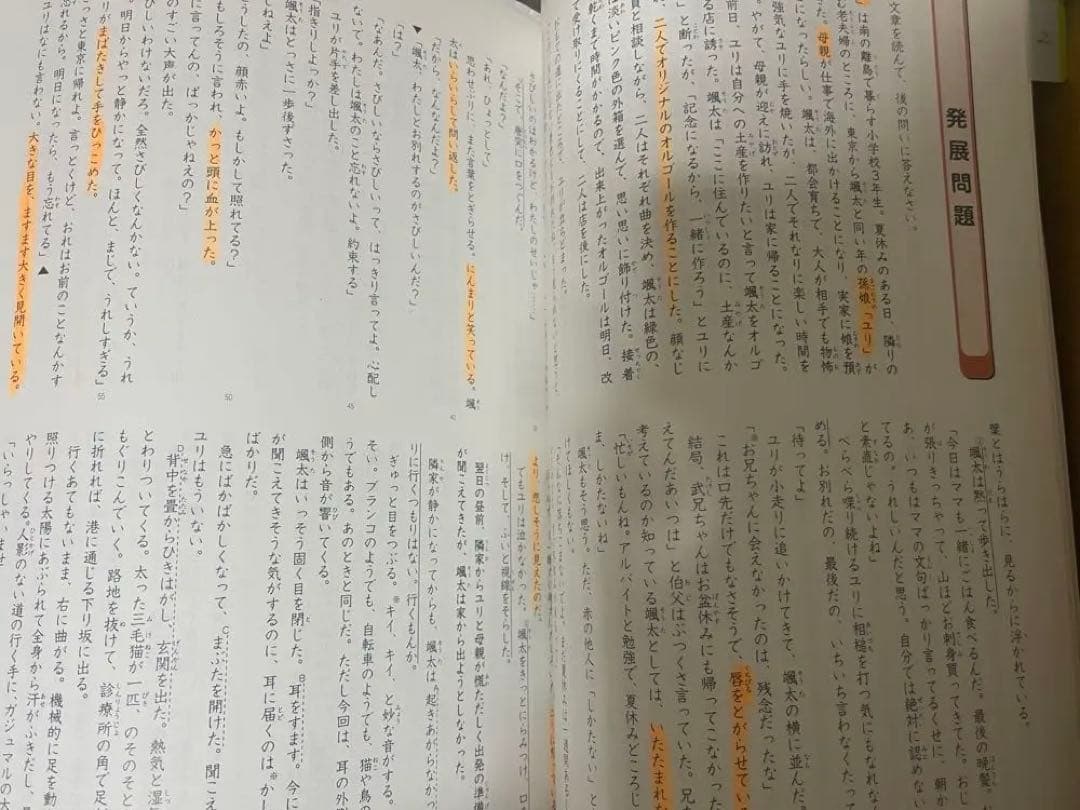 発展問題
文章を読んで、後の問いに答えなさい。
は南の離島で暮らす小学校3年生。夏休みのある日、隣りの
む老夫婦のところに、東京から颯太と同い年の孫娘「ユリ」が
た。母親が仕事で海外に出かけることになり、実家に娘を預
になったらしい。颯太は、都会育ちで、大人が相手でも物怖
強気なユリに手を焼いたが、二人でそれなりに楽しい時間を
。やがて、母親が迎えに訪れ、ユリは家に帰ることになった。
前日、ユリは自分への土産を作りたいと言って颯太をオルゴ
る店に誘った。颯太は「ここに住んでいるのに、土産なんか
」と断ったが、「記念になるから、一緒に作ろう」とユリに
二人でオリジナルのオルゴールを作ることにした。顔なじ
員と相談しながら、二人はそれぞれ曲を決め、颯太は緑色の、
は淡いピンク色の外箱を選んで、思い思いに飾り付けた。接着
乾くまで時間がかかるので、出来上がったオルゴールは明日、改
て受け取りにくることにして、二人は店を後にした。
葉とはうらはらに、見るからに浮かれている。
颯太は黙って歩き出した。
「今日はママも一緒にごはん食べるんだ。最後の晩餐。
が張りきっちゃって、山ほどお刺身買ってきてた。おじ
あ、いつもはママの文句ばっかり言ってるくせに、朝か
てるの。うれしいんだと思う。自分では絶対に認めない
と素直じゃないよね」
べらべら喋り続けるユリに相槌を打つ気にもなれな
める。お別れだの、最後だの、いちいち言わなくたっ
「待ってよ」
ユリが小走りに追いかけてきて、颯太の横に並んだ。
「お兄ちゃんに会えなかったのは、残念だったな」
これは口先だけでもなさそうで、唇をとがらせてい
結局、武兄ちゃんはお盆休みにも帰ってこなかった
えてんだあいつは」と伯父はぶつくさ言っていた。兄
考えているのか知っている颯太としては、いたたまれ
「忙しいもんね。アルバイトと勉強で、夏休みどころじ
ま、しかたないね」
颯太もそう思う。ただ、赤の他人に「しかたない」と
さびしいのはわかるけど、わたしのせいじゃ
「なんだよ?」
「あれ、ひょっとして」
思わせぶりに、また言葉をとぎらせる。にんまりと笑っている。颯
太はいらいらして問い返した。
「だから、なんなんだよ?」
▼「颯太、わたしとお別れするのがさびしいんだ?」
「は?」
「なあんだ。さびしいならさびしいって、はっきり言ってよ。心配し
ないで。わたしは颯太のこと忘れないよ。約束する」
ユリが片手を差し出した。
指きりしよっか?」
颯太はとっさに一歩後ずさった。
しねえよ」
どうしたの、顔赤いよ。もしかして照れてる?」
もしろそうに言われ、かっと頭に血が上った。
に言ってんの、ばっかじゃねえの?」
のすごい大声が出た。
びしいわけないだろ。全然さびしくなんかない。ていうか、うれ
。明日からやっと静かになって。ほんと、まじで、うれしすぎる」
リがまばたきして手をひっこめた。
さっと東京に帰れよ。言っとくけど、おれはお前のことなんかす
忘れるから。明日になったら、もう忘れてる」▲
ユリはなにも言わない。大きな目を、ますます大きく見開いている。
40
45
50
55
より、悲しそうに見えたのだ。
でもユリは泣かなかった。颯太をきっとにらみつけ、ロ
け、そして、ふいと視線をそらした。
翌日の昼前、隣家からユリと母親が慌ただしく出発の準備
が聞こえてきたが、颯太は家から出ようとしなかった。
りに行くつもりはない。行くもんか。
隣家が静かになってからも、颯太は起きあがらなかっ
ぎゅっと目をつぶる。※キイ、キイ、と妙な音がする。
そい。ブランコのようでも、自転車のようでも、猫や鳥の
うでもある。あのときと同じだ。ただし今回は、耳の外
側から音が響いてくる。
颯太はいっそう固く目を閉じた。B耳をすます。今に
が聞こえてきそうな気がするのに、耳に届くのは※かし
ばかりだ。
急にばかばかしくなって、Cまぶたを開けた。聞こ
ユリはもういない。
D背中を畳からひきはがし、玄関を出た。熱気と湿
とわりついてくる。太った三毛猫が一匹、のそのそと
もぐりこんでいく。路地を抜けて、診療所の角で足
に折れれば、港に通じる下り坂に出る。
行くあてもないまま、右に曲がる。機械的に足を動
照りつける太陽にあぶられて全身から汗がふきだし、
やりしてくる。人影のない道の行く手に、ガジュマルの大
「いらっしゃいませ